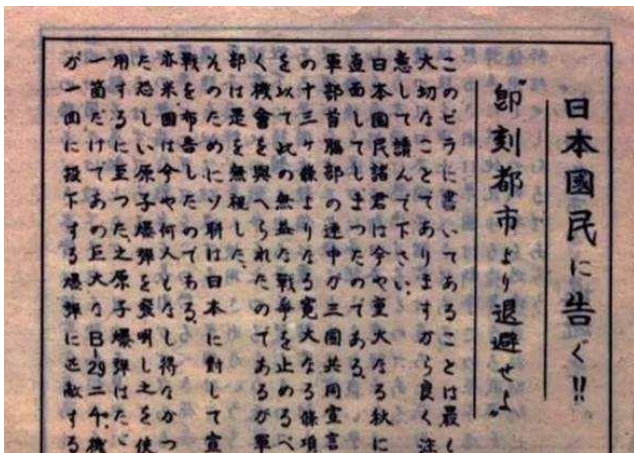 日本國民に告ぐ!!
"即刻都市より退避せよ"
このビラに書いてあることは最も
大切なことでありますから良く注
意して讀んで下さい。
日本國民諸君は今や重大なる秋に
直面してしまつたのである。
軍部首腦部の連中が三國共同宣言
の十三ヶ條よりなる寛大なる條項
を以て此の無益な戰爭を止めるべ
く機會を與へられたのであるが軍
部は是を無視した。
そのためにソ聯は日本に對して宣
戰を布告したのである。
亦米國は今や何人もなし得なかつ
た恐しい原子爆彈を發明し之を使
用するに至つた。之原子爆彈はたゞ
一箇だけであの巨大なB-29二千機
が一回に投下する爆彈に匹敵する